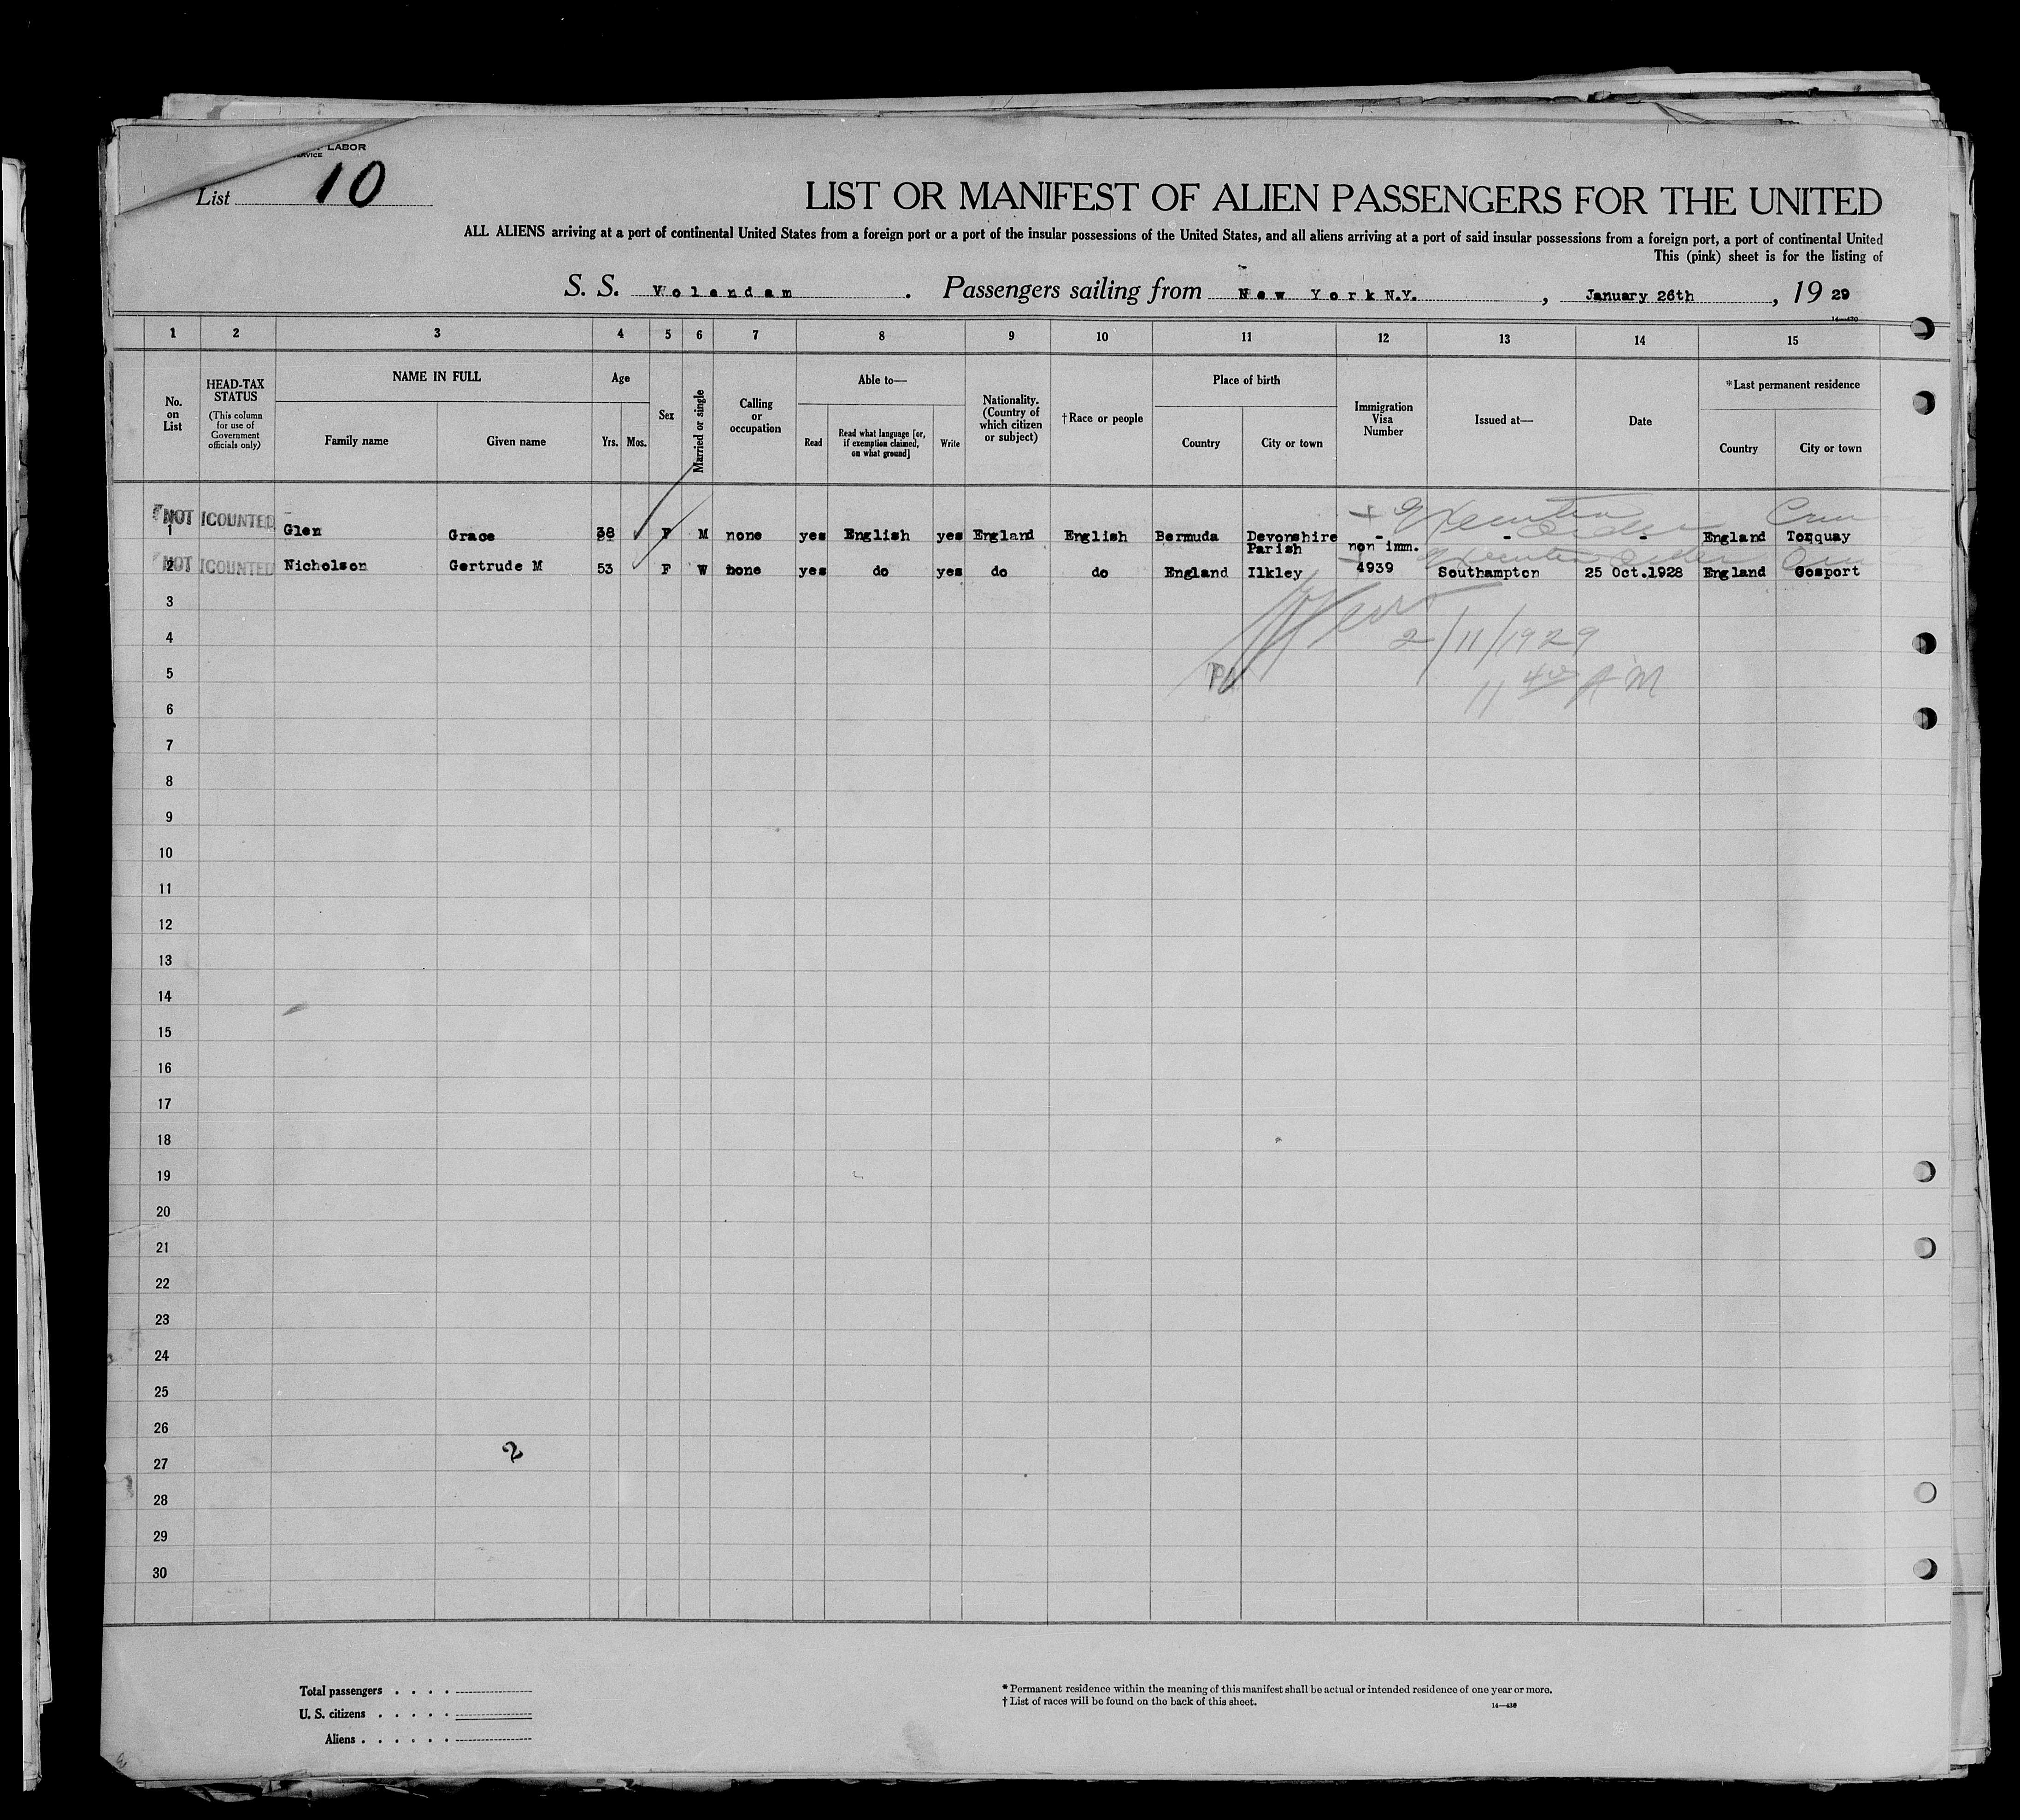 LABOR
SERVICE
List 10
LIST OR MANIFEST OF ALIEN PASSENGERS FOR THE UNITED
ALL ALIENS arriving at a port of continental United States from a foreign port or a port of the insular possessions of the United States, and all aliens arriving at a port of said insular possessions from a foreign port, a port of continental United
This (pink) sheet is for the listing of
S. S. Volendam . Passengers sailing from New York N.Y. , January 26th , 19 29
14—430
1 2 3 4 5 6 7 8 9 10 11 12 13 14 15
No. on List
HEAD-TAX STATUS (This column for use of Government officials only)
NAME IN FULL
Family name Given name
Age
Yrs. Mos.
Sex
Married or single
Calling or occupation
Able to—
Read
Read what language [or, if exemption claimed, on what ground]
Write
Nationality. (Country of which citizen or subject)
†Race or people
Place of birth
Country City or town
Immigration Visa Number
Issued at—
Date
*Last permanent residence
Country City or town
NOT COUNTED
1 Glen Grace 38 F M none yes English yes England English Bermuda Devonshire Parish - - - England Torquay
NOT COUNTED
2 Nicholson Gertrude M 53 F W none yes do yes do do England Ilkley non imm. 4939 Southampton 25 Oct.1928 England Gosport
3
2/11/1929
4
5
11 40 A M
6
7
8
9
10
11
12
13
14
15
16
17
18
19
20
21
22
23
24
25
26
2
27
28
29
30
Total passengers . . . .
U. S. citizens . . . . .
Aliens . . . . . .
* Permanent residence within the meaning of this manifest shall be actual or intended residence of one year or more.
† List of races will be found on the back of this sheet.
14—430